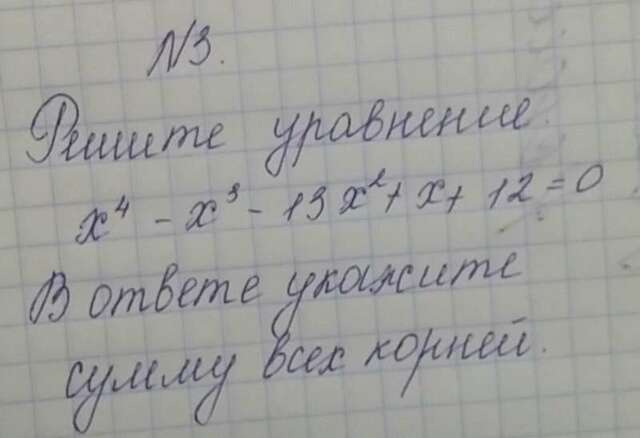 N3.
Решите уравнение.
x⁴ - x³ - 13x² + x + 12 = 0
В ответе укажите
сумму всех корней.